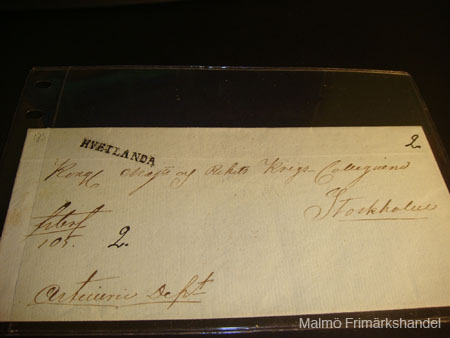 HVETLANDA
2
Kongl Majts og Rikets Krigs Collegium
Stockholm
frbref
105. 2.
Artilerie Dept
Malmö Frimärkshandel